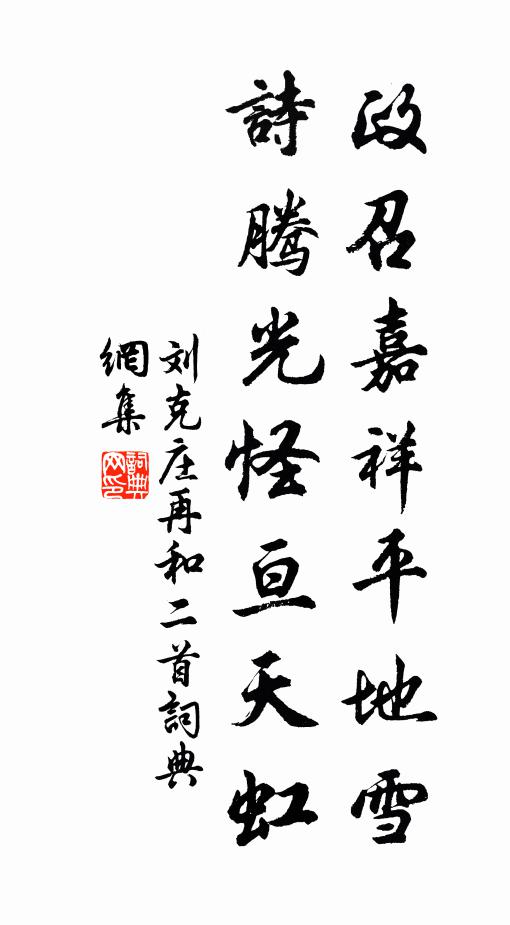 政召嘉祥平地雪
詩騰光怪亘天虹
刘克庄再和二首詞典
網集
詞典網印